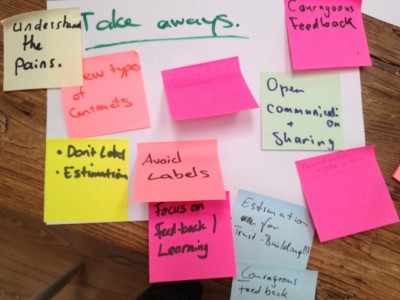 Take aways.
Understand
the
Pains.
New type
of
Courageous
Feedback
Open
communication
+
Sharing
• Don't Label
• Estimation
Avoid
Labels
Focus on
Feed-back /
Learning
Estimation
for
Trust-Building!!!
Courageous
feedback